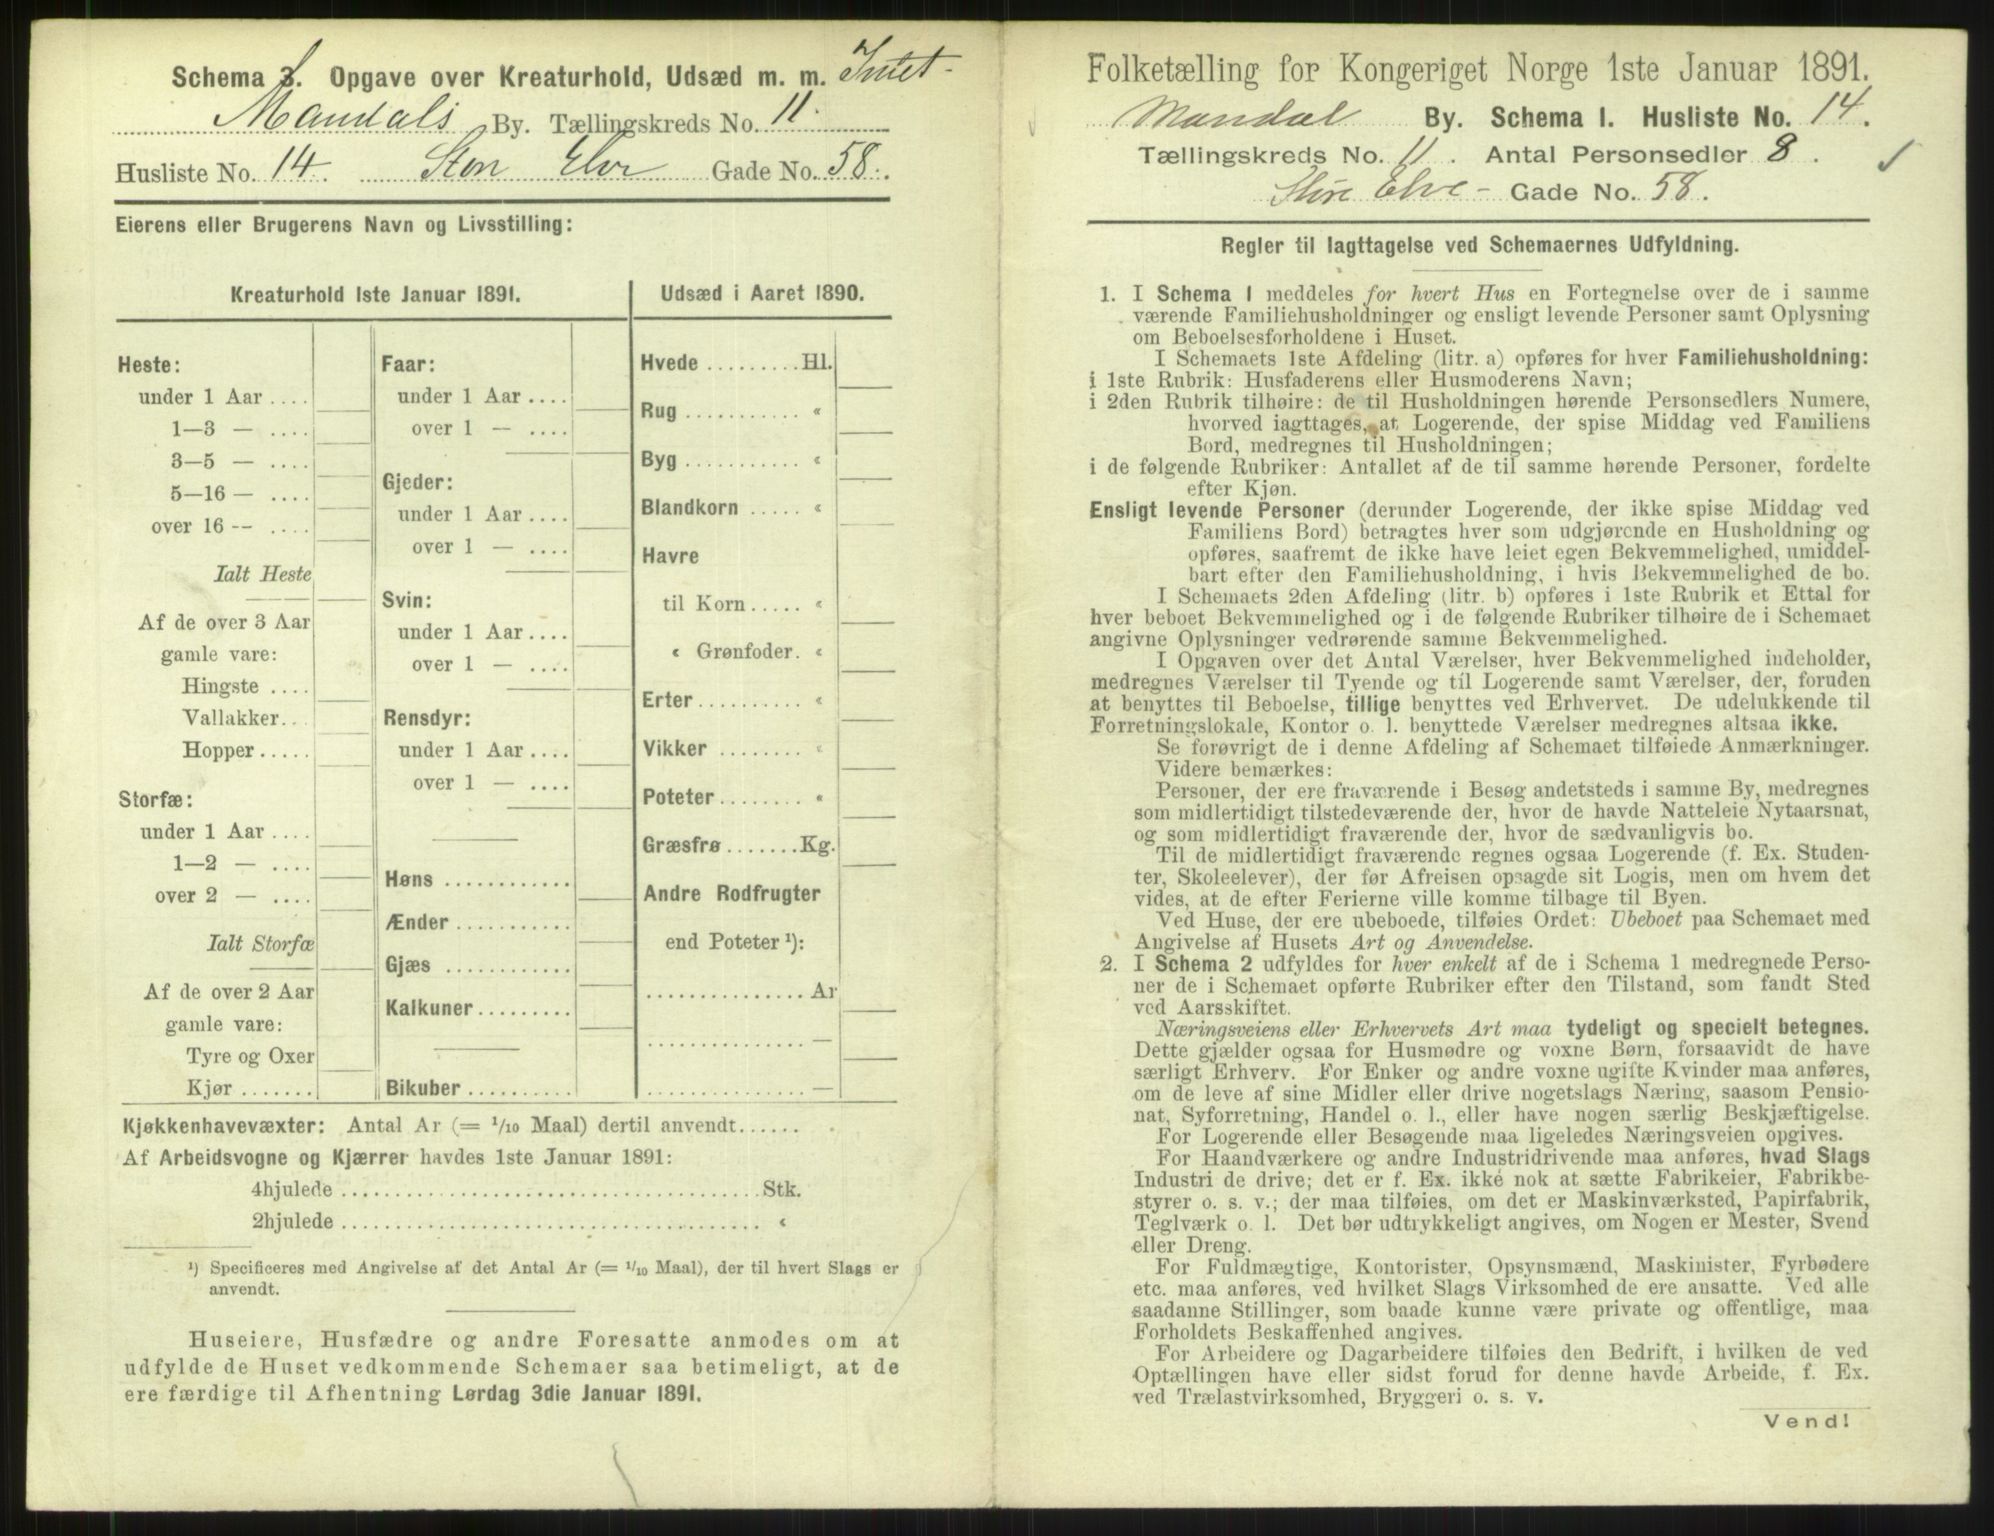 Schema 3. Opgave over Kreaturhold, Udsæd m. m. Intet-
Mandals By. Tællingskreds No. 11.
Husliste No. 14. Stor Elve Gade No. 58.
Eierens eller Brugerens Navn og Livsstilling:
Kreaturhold 1ste Januar 1891.
Heste:
under 1 Aar ....
1—3 — ....
3—5 — ....
5—16 — ....
over 16 -- ....
Ialt Heste
Af de over 3 Aar
gamle vare:
Hingste ....
Vallakker...
Hopper .....
Storfæ:
under 1 Aar ....
1—2 — ....
over 2 — ....
Ialt Storfæ
Af de over 2 Aar
gamle vare:
Tyre og Oxer
Kjør .......
Faar:
under 1 Aar ....
over 1 — ....
Gjeder:
under 1 Aar ....
over 1 — ....
Svin:
under 1 Aar ....
over 1 — ....
Rensdyr:
under 1 Aar ....
over 1 — ....
Høns ............
Ænder ...........
Gjæs ............
Kalkuner.........
Bikuber ..........
Udsæd i Aaret 1890.
Hvede ......... Hl.
Rug ........... «
Byg ........... «
Blandkorn ..... «
Havre
til Korn ..... «
« Grønfoder. «
Erter .......... «
Vikker ........ «
Poteter ........ «
Græsfrø ....... Kg.
Andre Rodfrugter
end Poteter ¹):
............... Ar
............... —
............... —
Kjøkkenhavevæxter: Antal Ar (= 1/10 Maal) dertil anvendt......
Af Arbeidsvogne og Kjærrer havdes 1ste Januar 1891:
4hjulede ........................................ Stk.
2hjulede ........................................ «
¹) Specificeres med Angivelse af det Antal Ar (= 1/10 Maal), der til hvert Slags er
anvendt.
Huseiere, Husfædre og andre Foresatte anmodes om at
udfylde de Huset vedkommende Schemaer saa betimeligt, at de
ere færdige til Afhentning Lørdag 3die Januar 1891.
Folketælling for Kongeriget Norge 1ste Januar 1891.
Mandal By. Schema I. Husliste No. 14.
Tællingskreds No. 11. Antal Personsedler 8.
Store Elve- Gade No. 58.
Regler til Iagttagelse ved Schemaernes Udfyldning.
1. I Schema I meddeles for hvert Hus en Fortegnelse over de i samme
værende Familiehusholdninger og ensligt levende Personer samt Oplysning
om Beboelsesforholdene i Huset.
I Schemaets 1ste Afdeling (litr. a) opføres for hver Familiehusholdning:
i 1ste Rubrik: Husfaderens eller Husmoderens Navn;
i 2den Rubrik tilhøire: de til Husholdningen hørende Personsedlers Numere,
hvorved iagttages, at Logerende, der spise Middag ved Familiens
Bord, medregnes til Husholdningen;
i de følgende Rubriker: Antallet af de til samme hørende Personer, fordelte
efter Kjøn.
Ensligt levende Personer (derunder Logerende, der ikke spise Middag ved
Familiens Bord) betragtes hver som udgjørende en Husholdning og
opføres, saafremt de ikke have leiet egen Bekvemmelighed, umiddel-
bart efter den Familiehusholdning, i hvis Bekvemmelighed de bo.
I Schemaets 2den Afdeling (litr. b) opføres i 1ste Rubrik et Ettal for
hver beboet Bekvemmelighed og i de følgende Rubriker tilhøire de i Schemaet
angivne Oplysninger vedrørende samme Bekvemmelighed.
I Opgaven over det Antal Værelser, hver Bekvemmelighed indeholder,
medregnes Værelser til Tyende og til Logerende samt Værelser, der, foruden
at benyttes til Beboelse, tillige benyttes ved Erhvervet. De udelukkende til
Forretningslokale, Kontor o. l. benyttede Værelser medregnes altsaa ikke.
Se forøvrigt de i denne Afdeling af Schemaet tilføiede Anmærkninger.
Videre bemærkes:
Personer, der ere fraværende i Besøg andetsteds i samme By, medregnes
som midlertidigt tilstedeværende der, hvor de havde Natteleie Nytaarsnat,
og som midlertidigt fraværende der, hvor de sædvanligvis bo.
Til de midlertidigt fraværende regnes ogsaa Logerende (f. Ex. Studen-
ter, Skoleelever), der før Afreisen opsagde sit Logis, men om hvem det
vides, at de efter Ferierne ville komme tilbage til Byen.
Ved Huse, der ere ubeboede, tilføies Ordet: Ubeboet paa Schemaet med
Angivelse af Husets Art og Anvendelse.
2. I Schema 2 udfyldes for hver enkelt af de i Schema 1 medregnede Perso-
ner de i Schemaet opførte Rubriker efter den Tilstand, som fandt Sted
ved Aarsskiftet.
Næringsveiens eller Erhvervets Art maa tydeligt og specielt betegnes.
Dette gjælder ogsaa for Husmødre og voxne Børn, forsaavidt de have
særligt Erhverv. For Enker og andre voxne ugifte Kvinder maa anføres,
om de leve af sine Midler eller drive nogetslags Næring, saasom Pensio-
nat, Syforretning, Handel o. l., eller have nogen særlig Beskjæftigelse.
For Logerende eller Besøgende maa ligeledes Næringsveien opgives.
For Haandværkere og andre Industridrivende maa anføres, hvad Slags
Industri de drive; det er f. Ex. ikke nok at sætte Fabrikeier, Fabrikbe-
styrer o. s. v.; der maa tilføies, om det er Maskinværksted, Papirfabrik,
Teglværk o. l. Det bør udtrykkeligt angives, om Nogen er Mester, Svend
eller Dreng.
For Fuldmægtige, Kontorister, Opsynsmænd, Maskinister, Fyrbødere
etc. maa anføres, ved hvilket Slags Virksomhed de ere ansatte. Ved alle
saadanne Stillinger, som baade kunne være private og offentlige, maa
Forholdets Beskaffenhed angives.
For Arbeidere og Dagarbeidere tilføies den Bedrift, i hvilken de ved
Optællingen have eller sidst forud for denne havde Arbeide, f. Ex.
ved Trælastvirksomhed, Bryggeri o. s. v.
Vend!